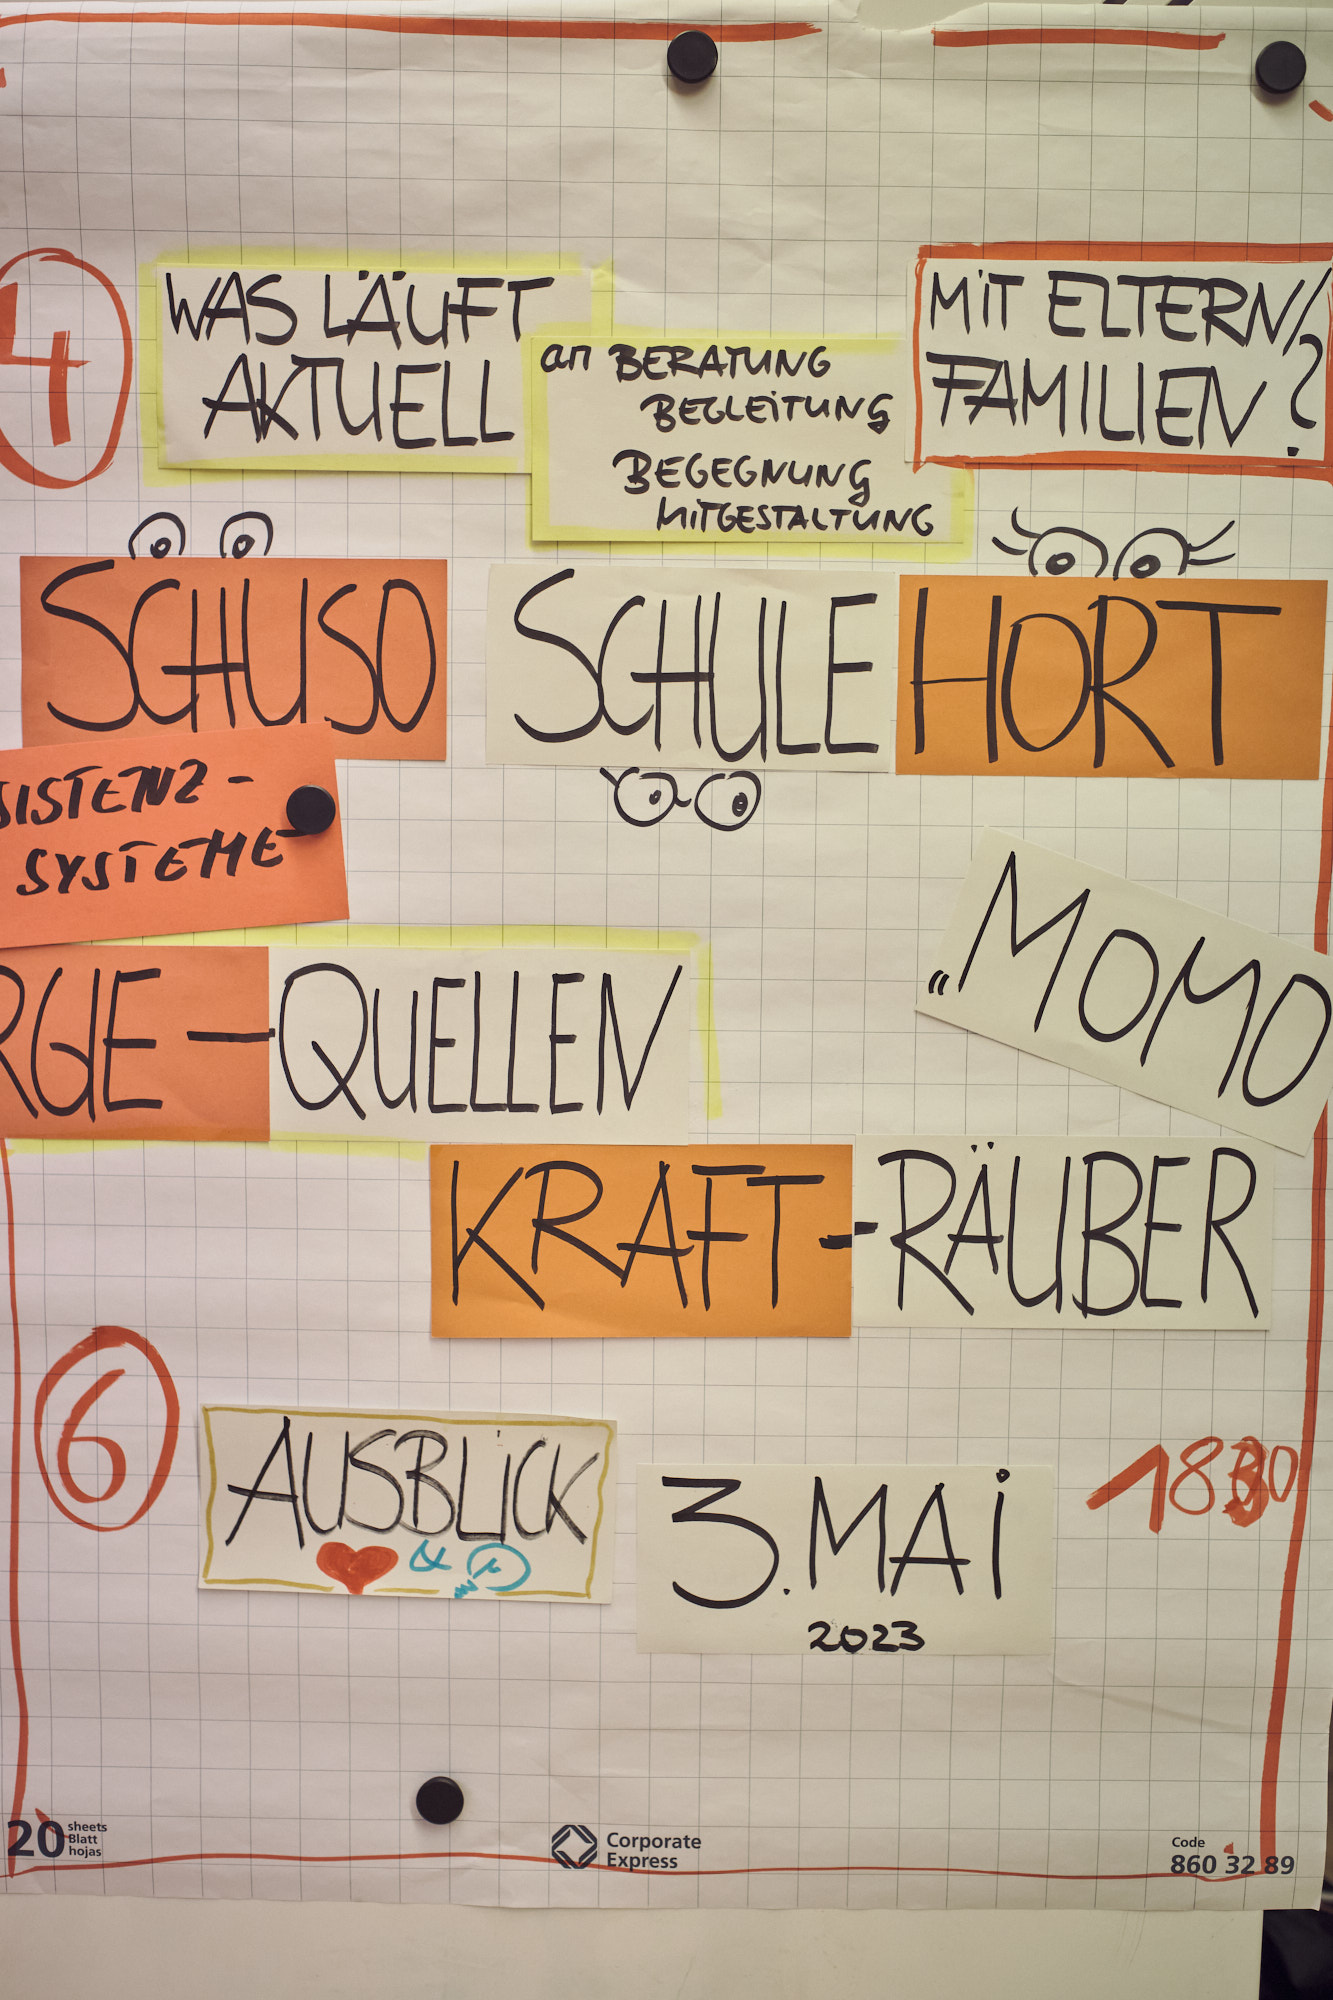 4
WAS LÄUFT
AKTUELL
an BERATUNG
BEGLEITUNG
BEGEGNUNG
MITGESTALTUNG
MiT ELTERN/
FAMILIEN?
SCHUSO
SCHULE HORT
SISTENZ-
SYSTEME
„MOMO
RGIE-QUELLEN
KRAFT-RÄUBER
6
AUSBLiCK
&
3. MAi
2023
1830
20 sheets
Blatt
hojas
Corporate
Express
Code
860 32 89